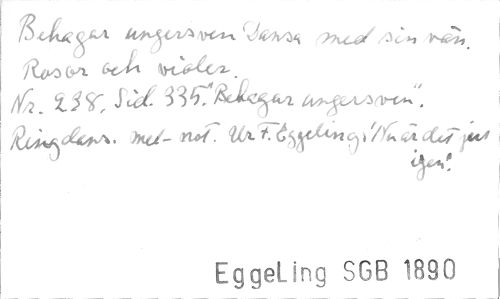 Behagar ungersven dansa med sin vän.
Rosor och violer.
Nr. 238, Sid. 335. "Behagar ungersven".
Ringdans. mel-not. Ur F. Eggeling: "Nu är det jul
igen".
EggeLing SGB 1890